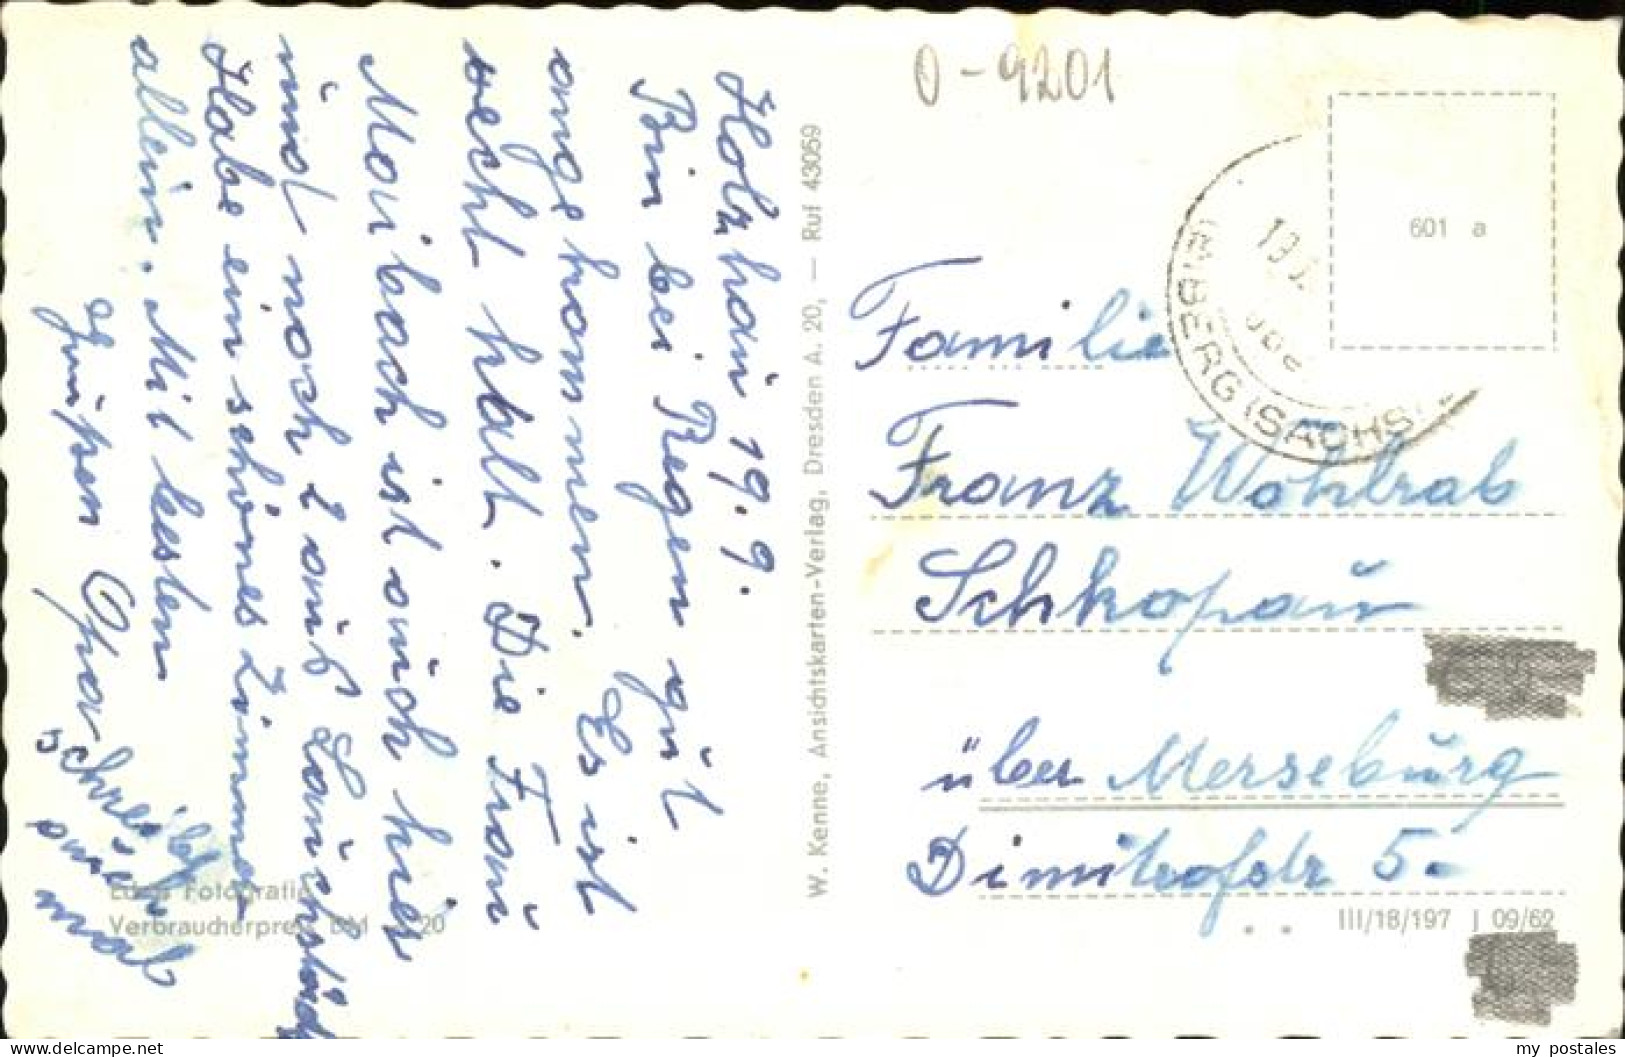 0-9201
Holzhau 19.9.
Bin bei Regen gut
angekommen. Es ist
recht kalt. Die Frau
Maibach ist auch hier
und noch 2 aus Lauchstädt
Habe ein schönes Zimmer
allein. Mit besten
Grüßen Opa
schreibt
auch mal
W. Kenne, Ansichtskarten-Verlag, Dresden A. 20, — Ruf 43059
Echte Fotografie
Verbraucherpreis DM 20
601 a
BERG (SACHS)
Familie
Franz Wohlrab
Schkopau
über Merseburg
Dimitrofstr 5.
III/18/197 J 09/62
my postales